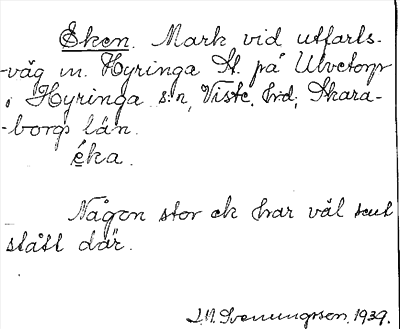 Eken. Mark vid utfarts-
-väg m. Hyringa St. på Ulvetorp
i Hyringa s:n, Viste hrd, Skara-
-borgs län.
éka.
Någon stor ek har väl
stått där.
1939.